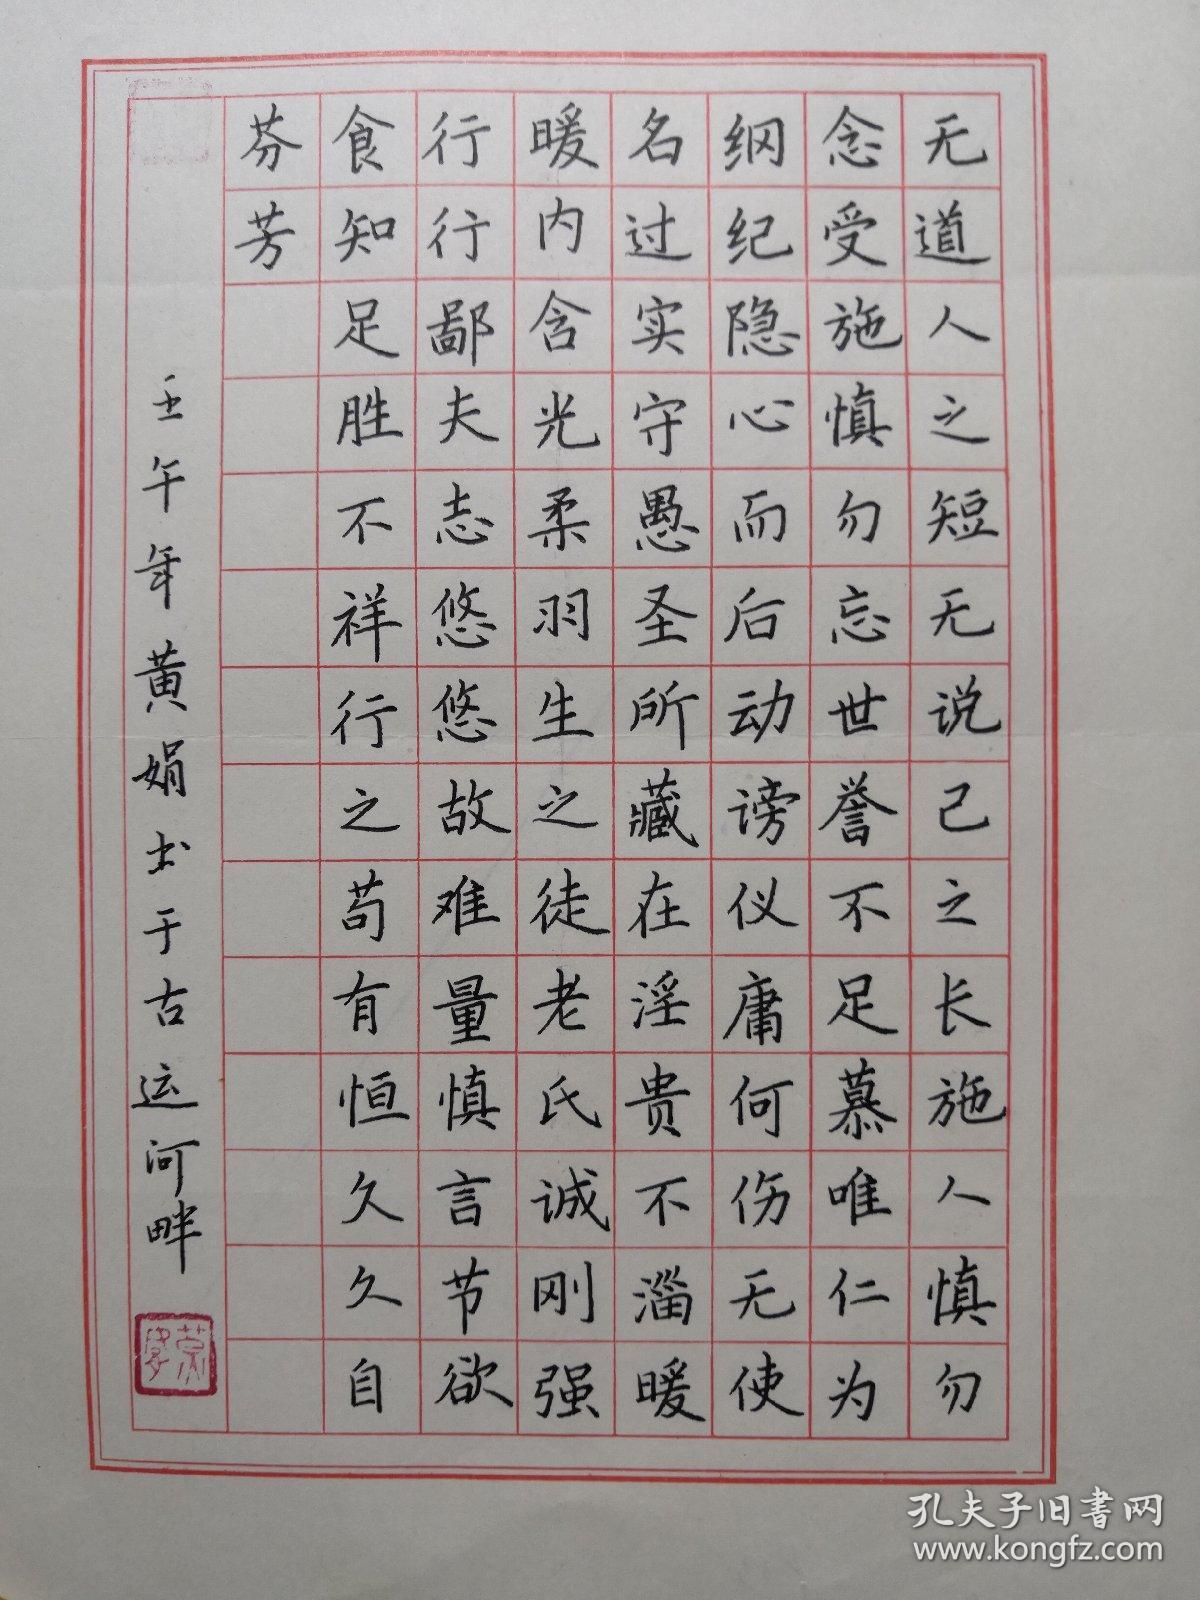 无道人之短无说己之长施人慎勿
念受施慎勿忘世誉不足慕唯仁为
纲纪隐心而后动谤仪庸何伤无使
名过实守愚圣所藏在淫贵不淄暖
暖内含光柔羽生之徒老氏诚刚强
行行鄙夫志悠悠故难量慎言节欲
食知足胜不祥行之苟有恒久久自
芬芳
壬午年黄娟书于古运河畔
孔夫子旧书网
www.kongfz.com